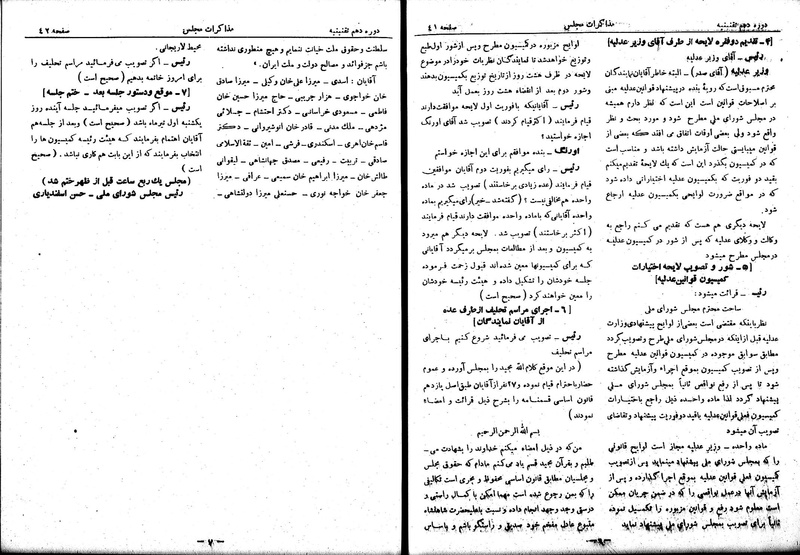 دوره دهم تقنینیه
مذاکرات مجلس
صفحه ٤١
[٤ـ تقدیم دوفقره لایحه از طرف آقای وزیر عدلیه]
رئیس ـ آقای وزیر عدلیه
وزیر عدلیه (آقای صدر) ـ البته خاطر آقایان نمایندگان
محترم مسبوق است که رویهٔ بنده در پیشنهاد قوانین عدلیه مبنی
بر اصلاحات قوانین است این است که نظر دارم همیشه
در مجلس شورای ملی مطرح شود و مورد بحث و نظر
واقع شود ولی بعضی اوقات اتفاق می افتد که بعضی از
قوانین میبایستی حالت آزمایش داشته باشد و مناسب است
که در کمیسیون بگذرد این است که یك لایحهٔ تقدیم میکنم
بقید دو فوریت که بکمیسیون عدلیه اختیاراتی داده شود
که در مواقع ضرورت لوایحی بکمیسیون عدلیه ارجاع
شود.
لایحه دیگری هم هست که تقدیم می کنم راجع به
وکالت و وکلای عدلیه که پس از شور در کمیسیون عدلیه
در مجلس مطرح میشود
[٥ـ شور و تصویب لایحه اختیارات
کمیسیون قوانین عدلیه]
رئیس ـ قرائت میشود:
ساحت محترم مجلس شورای ملی
نظر باینکه مقتضی است بعضی از لوایح پیشنهادی وزارت
عدلیه قبل از اینکه در مجلس شورای ملی طرح و تصویب گردد
مطابق سوابق موجوده در کمیسیون قوانین عدلیه مطرح
و پس از تصویب کمیسیون بموقع اجراء و آزمایش گذاشته
شود تا پس از رفع نواقص ثانیاً بمجلس شورای ملی
پیشنهاد گردد لذا ماده واحده ذیل راجع باختیارات
کمیسیون فعلی قوانین عدلیه باقید دوفوریت پیشنهاد و تقاضای
تصویب آن میشود
ماده واحده ـ وزیر عدلیه مجاز است لوایح قانونی
را که بمجلس شورای ملی پیشنهاد مینماید پس از تصویب
کمیسیون فعلی قوانین عدلیه بموقع اجرا گذارده و پس از
آزمایش آنها در عمل نواقصی را که در ضمن جریان ممکن
است معلوم شود رفع و قوانین مزبوره را تکمیل نموده
ثانیاً برای تصویب بمجلس شورای ملی پیشنهاد نماید
لوایح مزبوره در کمیسیون مطرح و پس از شور اول طبع
و توزیع خواهد شد تا نمایندگان نظریات خود را در موضوع
لایحه در ظرف هشت روز از تاریخ توزیع بکمیسیون بدهند
و شور دوم بعد از انقضاء هشت روز بعمل آید
رئیس ـ آقایانیکه بافوریت اول لایحه موافقت دارند
قیام فرمایند (اکثر قیام کردند) تصویب شد آقای اورنگ
اجازه خواستید؟
اورنگ ـ بنده موافقم برای این اجازه خواستم
رئیس ـ رای میگیریم بفوریت دوم آقایان موافقین
قیام فرمایند (عده زیادی برخاستند) تصویب شد در ماده
واحده هم مخالفی نیست؟ (گفته شد ـ خیر) رای میگیریم بماده
واحده آقایانی که باماده واحده موافقت دارند قیام فرمایند
(اکثر برخاستند) تصویب شد. لایحه دیگر هم میرود
به کمیسیون و بعد از مطالعات بمجلس بر میگردد آقایانی
که برای کمیسیونها معین شده اند قبول زحمت فرموده
جلسه خودشان را تشکیل داده و هیئت رئیسه خودشان
را معین خواهند کرد (صحیح است)
[٦ـ اجرای مراسم تحلیف از طرف عده
از آقایان نمایندگان]
رئیس ـ تصویب می فرمائید شروع کنیم باجرای
مراسم تحلیف
(در این موقع کلام الله مجید را بمجلس آورده و عموم
حضار باحترام قیام نموده و ٢٧ نفر از آقایان طبق اصل یازدهم
قانون اساسی قسمنامه را بشرح ذیل قرائت و امضاء
نمودند)
بسم الله الرحمن الرحیم
من که در ذیل امضاء میکنم خداوند را بشهادت می ـ
طلبم و بقرآن مجید قسم یاد می کنم مادام که حقوق مجلس
و مجلسیان مطابق قانون اساسی محفوظ و مجری است تکالیفی
را که بمن رجوع شده است مهما امکن با کمال راستی و
درستی وجد وجهد انجام داده و نسبت باعلیحضرت شاهنشاه
متبوع عادل مفخم خود صدیق و راستگو باشم و باساس
دوره دهم تقنینیه
مذاکرات مجلس
صفحه ٤٢
سلطنت و حقوق ملت خیانت ننمایم و هیچ منظوری نداشته
باشم جز فوائد و مصالح دولت و ملت ایران.
آقایان: اسدی ـ میرزا علی خان وکیلی ـ میرزا صادق
خان خواجوی ـ هزار جریبی ـ حاج میرزا حسین خان
فاطمی ـ مسعودی خراسانی ـ دکتر احتشام ـ جلائی
مژدهی ـ ملك مدنی ـ قادر خان انوشیروانی ـ دکتر
قاسم خان اهری ـ اسکندری ـ قرشی ـ امین ـ ثقة الاسلامی
صادقی ـ تربیت ـ رفیعی ـ مصدق جهانشاهی ـ لیقوانی
طالش خان ـ میرزا ابراهیم خان سمیعی ـ عراقی ـ میرزا
جعفر خان خواجه نوری ـ حسنعلی میرزا دولتشاهی ـ
محیط لاریجانی.
رئیس ـ اگر تصویب می فرمائید مراسم تحلیف را
برای امروز خاتمه بدهیم (صحیح است)
[٧ـ موقع و دستور جلسه بعد ـ ختم جلسه]
رئیس ـ اگر تصویب میفرمائید جلسه آینده روز
یکشنبه اول تیرماه باشد (صحیح است) و بعد از جلسه هم
آقایان اهتمام بفرمایند که هیئت رئیسه کمیسیون ها را
انتخاب بفرمایند که از این بابت هم کاری نباشد. (صحیح
است)
(مجلس یك ربع ساعت قبل از ظهر ختم شد)
رئیس مجلس شورای ملی ـ حسن اسفندیاری